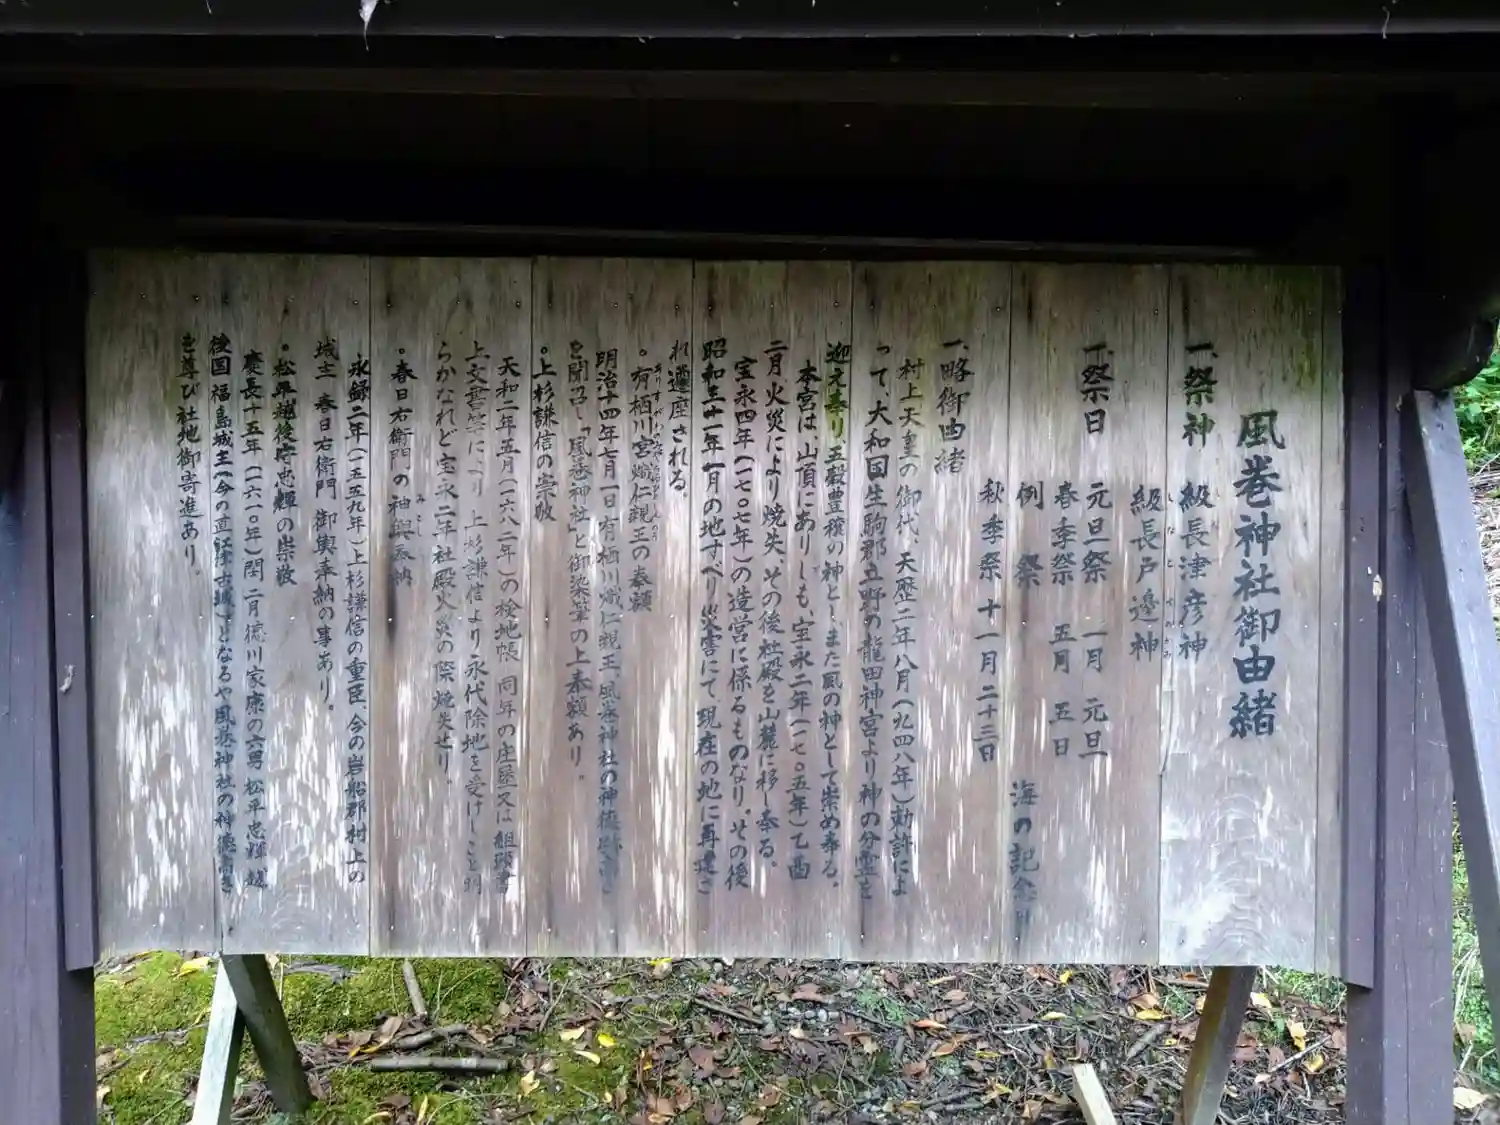 風巻神社御由緒
一、祭神 級長津彦神
級長戸邊神
一、祭日 元旦祭 一月 元旦
春季祭 五月 五日
例 祭 海の記念日
秋季祭 十一月二十三日
一、略御由緒
村上天皇の御代、天歴二年八月(九四八年)勅許によ
って、大和国生駒郡立野の龍田神宮より神の分霊を
迎え奉り、五穀豊穣の神とし、また風の神として崇め奉る。
本宮は、山頂にありしも、宝永二年(一七〇五年)乙酉
二月火災により焼失、その後社殿を山麓に移し奉る。
宝永四年(一七〇七年)の造営に係るものなり。その後
昭和三十一年一月の地すべり災害にて、現在の地に再遷さ
れ遷座される。
。有栖川宮熾仁親王の奉額
明治十四年七月一日有栖川熾仁親王、風巻神社の神徳
を聞召し「風巻神社」と御染筆の上奉額あり。
。上杉謙信の崇敬
天和二年五月(一六八二年)の検地帳、同年の庄屋又は組頭書
上文書等により、上杉謙信より永代除地を受けしこと明
らかなれど宝永二年社殿火災の際焼失せり。
。春日右衛門の神輿奉納
永録二年(一五五九年)上杉謙信の重臣、今の岩船郡村上の
城主 春日右衛門 御輿奉納の事あり。
。松平越後守忠輝の崇敬
慶長十五年(一六一〇年)閏二月徳川家康の六男 松平忠輝 越
後国 福島城主(今の直江津古城)となるや風巻神社の神徳高き
を尊び社地御寄進あり。